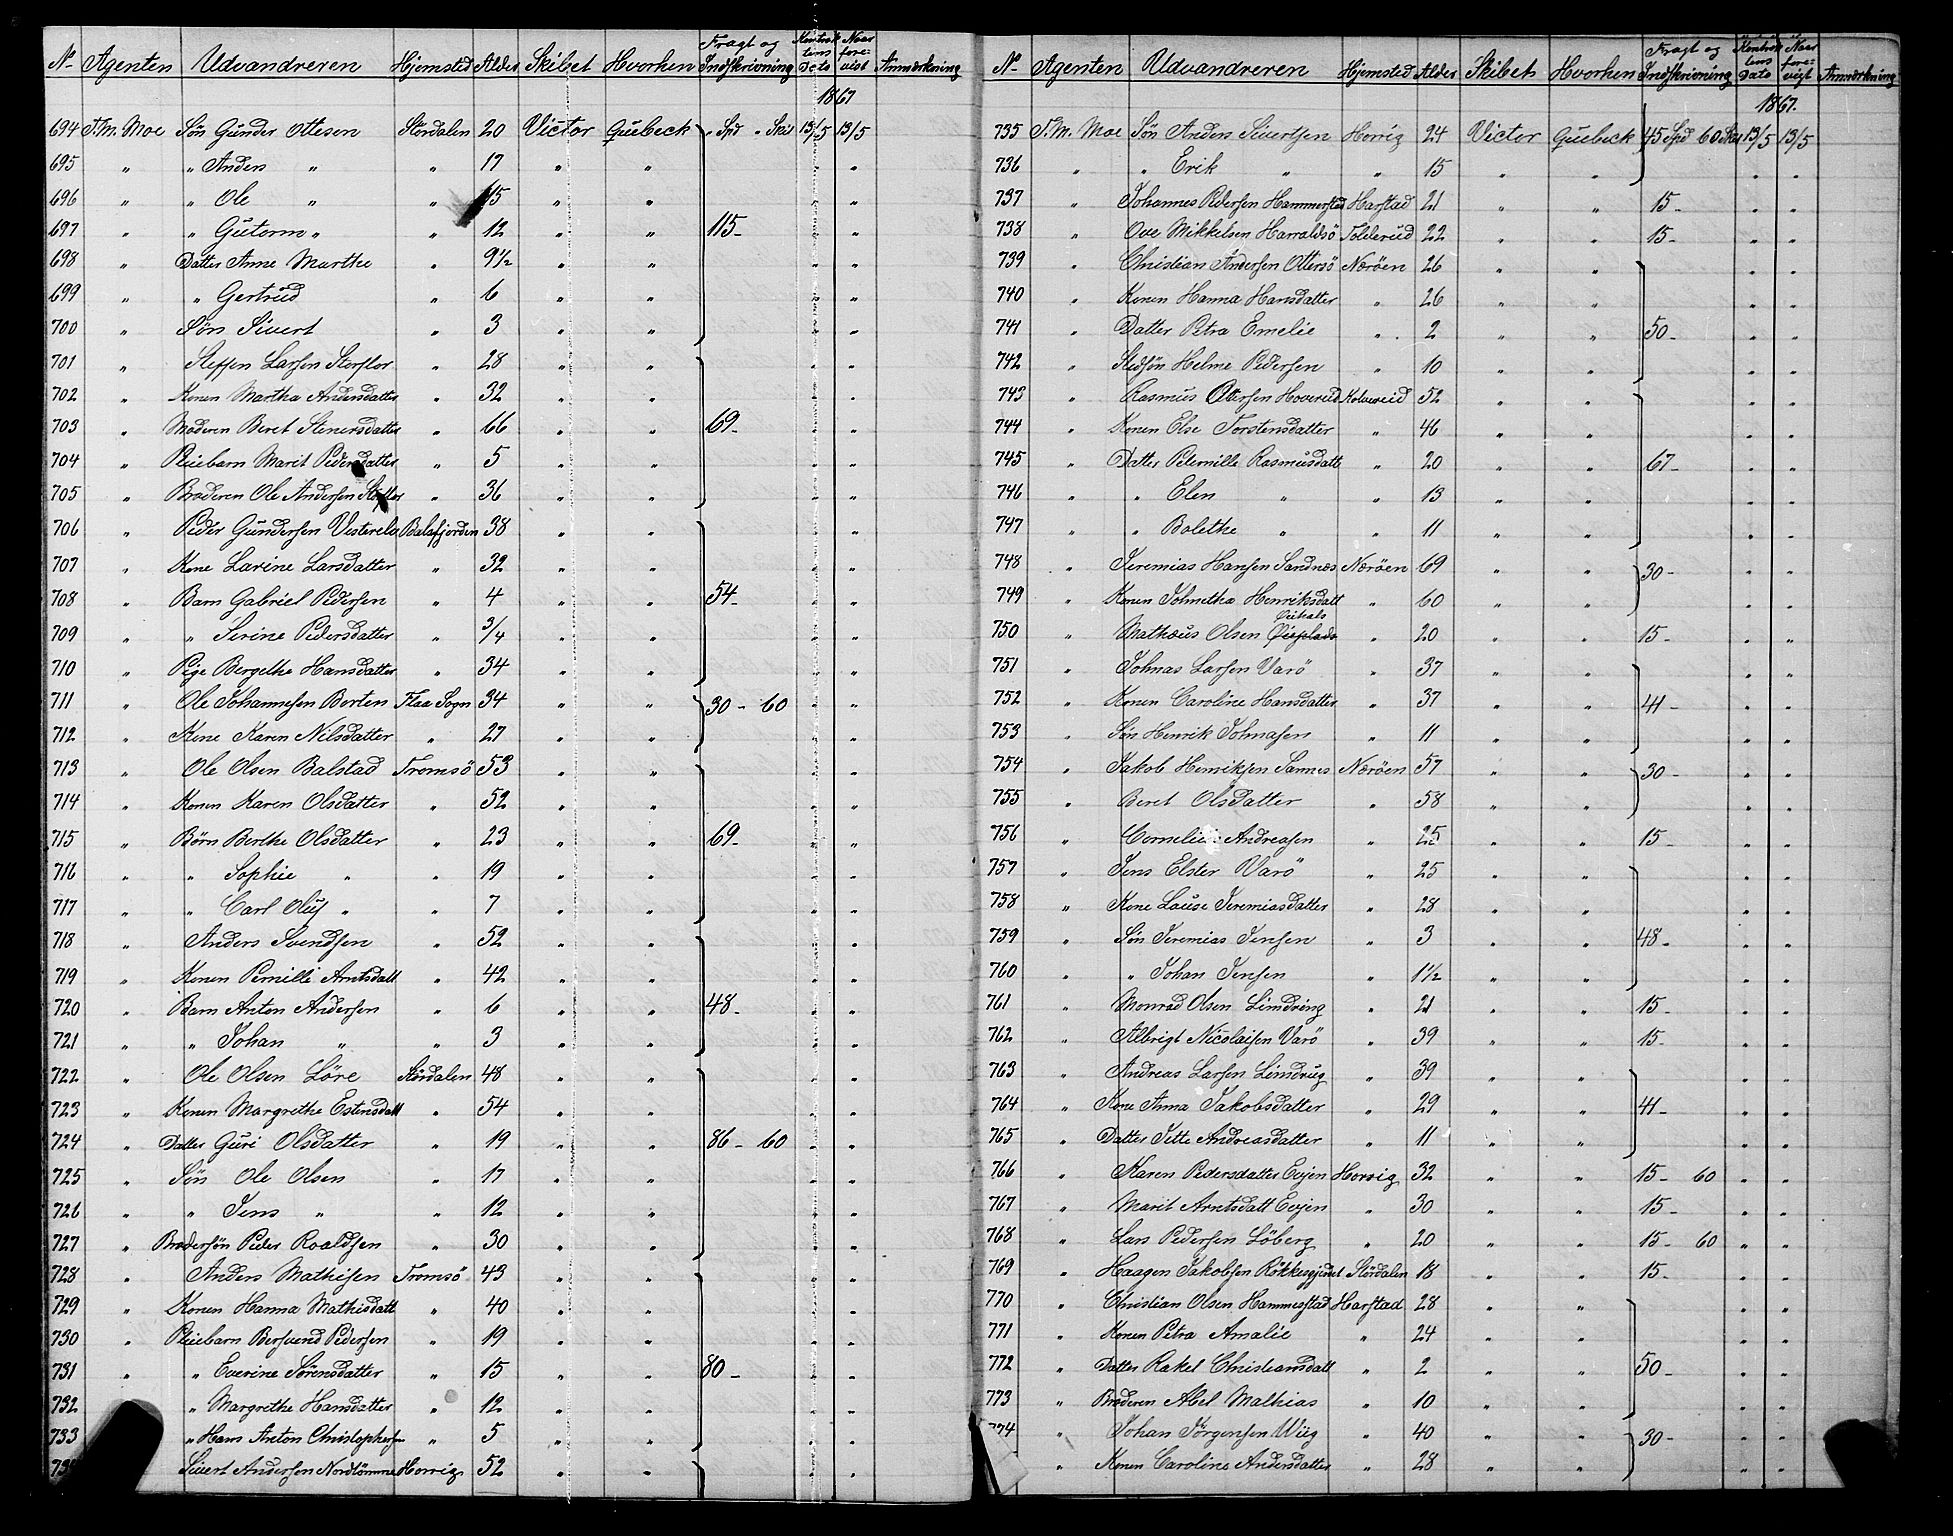 No Agenten Udvandreren Hjemsted Alder Skibet Hvorhen Fragt og Indskrivning Kontraktens Dato Naar forevist Anmærkning
1867
694 T. M. Moe Søn Gunder Ottesen Stördalen 20 Victor Quebeck " Spd " Skil 13/5 13/5
695 " " Anders " " 17 " " " "
696 " " Ole " " 15 " " " "
697 " " Gutorm " " 12 " " 115- " "
698 " Datter Anne Marthe " 9½ " " " "
699 " " Gertrud " 6 " " " "
700 " Søn Sivert " 3 " " " "
701 " Steffen Larsen Storflor " 28 " " " "
702 " Konen Martha Andersdatter " 32 " " " "
703 " Moderen Beret Stenersdatter " 66 " " 69- " "
704 " Pleiebarn Marit Pedersdatter " 5 " " " "
705 " Broderen Ole Andersen Storflor " 36 " " " "
706 " Peder Gundersen Vesterelv Balsfjorden 38 " " " "
707 " Kone Larine Larsdatter " 32 " " " "
708 " Barn Gabriel Pedersen " 4 " " 54- " "
709 " " Serine Pedersdatter " 3/4 " " " "
710 " Pige Bergethe Hansdatter " 34 " " " "
711 " Ole Johannesen Borten Flaa Sogn 34 " " 30- 60 " "
712 " Kone Karen Nilsdatter " 27 " " " "
713 " Ole Olsen Balstad Tromsö 53 " " " "
714 " Konen Karen Olsdatter " 52 " " " "
715 " Børn Berthe Olsdatter " 23 " " 69- " "
716 " " Sophie " " 19 " " " "
717 " " Carl Oluf " " 7 " " " "
718 " Anders Svendsen " 52 " " " "
719 " Konen Pernille Arntsdatt " 42 " " " "
720 " Barn Anton Andersen " 6 " " 48- " "
721 " " Johan " " 3 " " " "
722 " Ole Olsen Löre Stördalen 48 " " " "
723 " Konen Margrethe Estensdatt " 54 " " " "
724 " Datter Guri Olsdatter " 19 " " 86- 60 " "
725 " Søn Ole Olsen " 17 " " " "
726 " " Jens " " 12 " " " "
727 " Brodersön Peder Roaldsen " 30 " " " "
728 " Anders Mathisen Tromsö 43 " " " "
729 " Konen Hanna Mathisdatt " 40 " " " "
730 " Pleiebarn Bersvend Pedersen " 19 " " " "
731 " " Everine Sörensdatter " 15 " " 80- " "
732 " " Margrethe Hansdatter " 12 " " " "
733 " " Hans Anton Christophersen " 5 " " " "
73 Sivert Andersen Nordtömme Horrig 52 " " " "
No Agenten Udvandreren Hjemsted Alder Skibet Hvorhen Fragt og Indskrivning Kontraktens Dato Naar forevist Anmærkning
1867.
735 T. M. Moe Søn Anders Sivertsen Horrig 24 Victor Quebeck 45 Spd 60 Skil 13/5 13/5
736 " " Erik " " 15 " " " "
737 " Johannes Pedersen Hammerstad Harstad 21 " " 15- " "
738 " Ove Mikkelsen Harraldsö Folderud 22 " " 15- " "
739 " Christian Andersen Ottersö Nærøen 26 " " " "
740 " Konen Hanna Hansdatter " 26 " " " "
741 " Datter Petra Emelie " 2 " " 50- " "
742 " Stedsön Helme Pedersen " 10 " " " "
743 " Rasmus Ottersen Hoverud Kolvereid 52 " " " "
744 " Konen Else Torstensdatter " 46 " " " "
745 " Datter Peternille Rasmusdatt " 20 " " 67- " "
746 " " Elen " " 13 " " " "
747 " " Bolethe " " 11 " " " "
748 " Jeremias Hansen Sandnæs Nærøen 69 " " 30- " "
749 " Konen Johnetha Henriksdatt " 60 " " " "
750 " Mathæus Olsen " 20 " " 15- " "
751 " Johnas Larsen Varö " 37 " " " "
752 " Konen Caroline Hansdatter " 37 " " 41- " "
753 " Søn Henrik Johnasen " 11 " " " "
754 " Jakob Henriksen Sannes Nærøen 57 " " 30- " "
755 " Beret Olsdatter " 58 " " " "
756 " Cornelius Andreasen " 25 " " 15- " "
757 " Jens Elster Varö " 25 " " " "
758 " Kone Louise Jeremiasdatter " 28 " " " "
759 " Søn Jeremias Jensen " 3 " " 48- " "
760 " " Johan Jensen " 1½ " " " "
761 " Monrad Olsen Limdring " 21 " " 15- " "
762 " Albrigt Nicolaisen Varö " 39 " " 15- " "
763 " Andreas Larsen Limdrug " 39 " " " "
764 " Kone Anna Jakobsdatter " 29 " " 41- " "
765 " Datter Jette Andreasdatter " 11 " " " "
766 " Karen Pedersdatter Evjen Horrig 32 " " 15- 60 " "
767 " Marit Arntsdatt Evjen " 30 " " 15- " "
768 " Lars Pedersen Löberg " 20 " " 15- 60 " "
769 " Haagen Jakobsen Stördalen 18 " " 15- " "
770 " Christian Olsen Hammerstad Harstad 28 " " " "
771 " Konen Petra Amalie " 24 " " " "
772 " Datter Rakel Christiansdatt " 2 " " 50- " "
773 " Broderen Abel Mathias " 10 " " " "
774 " Johan Jörgensen Wiig " 40 " " 30- " "
" Konen Caroline Andersdatter " 28 " " " "